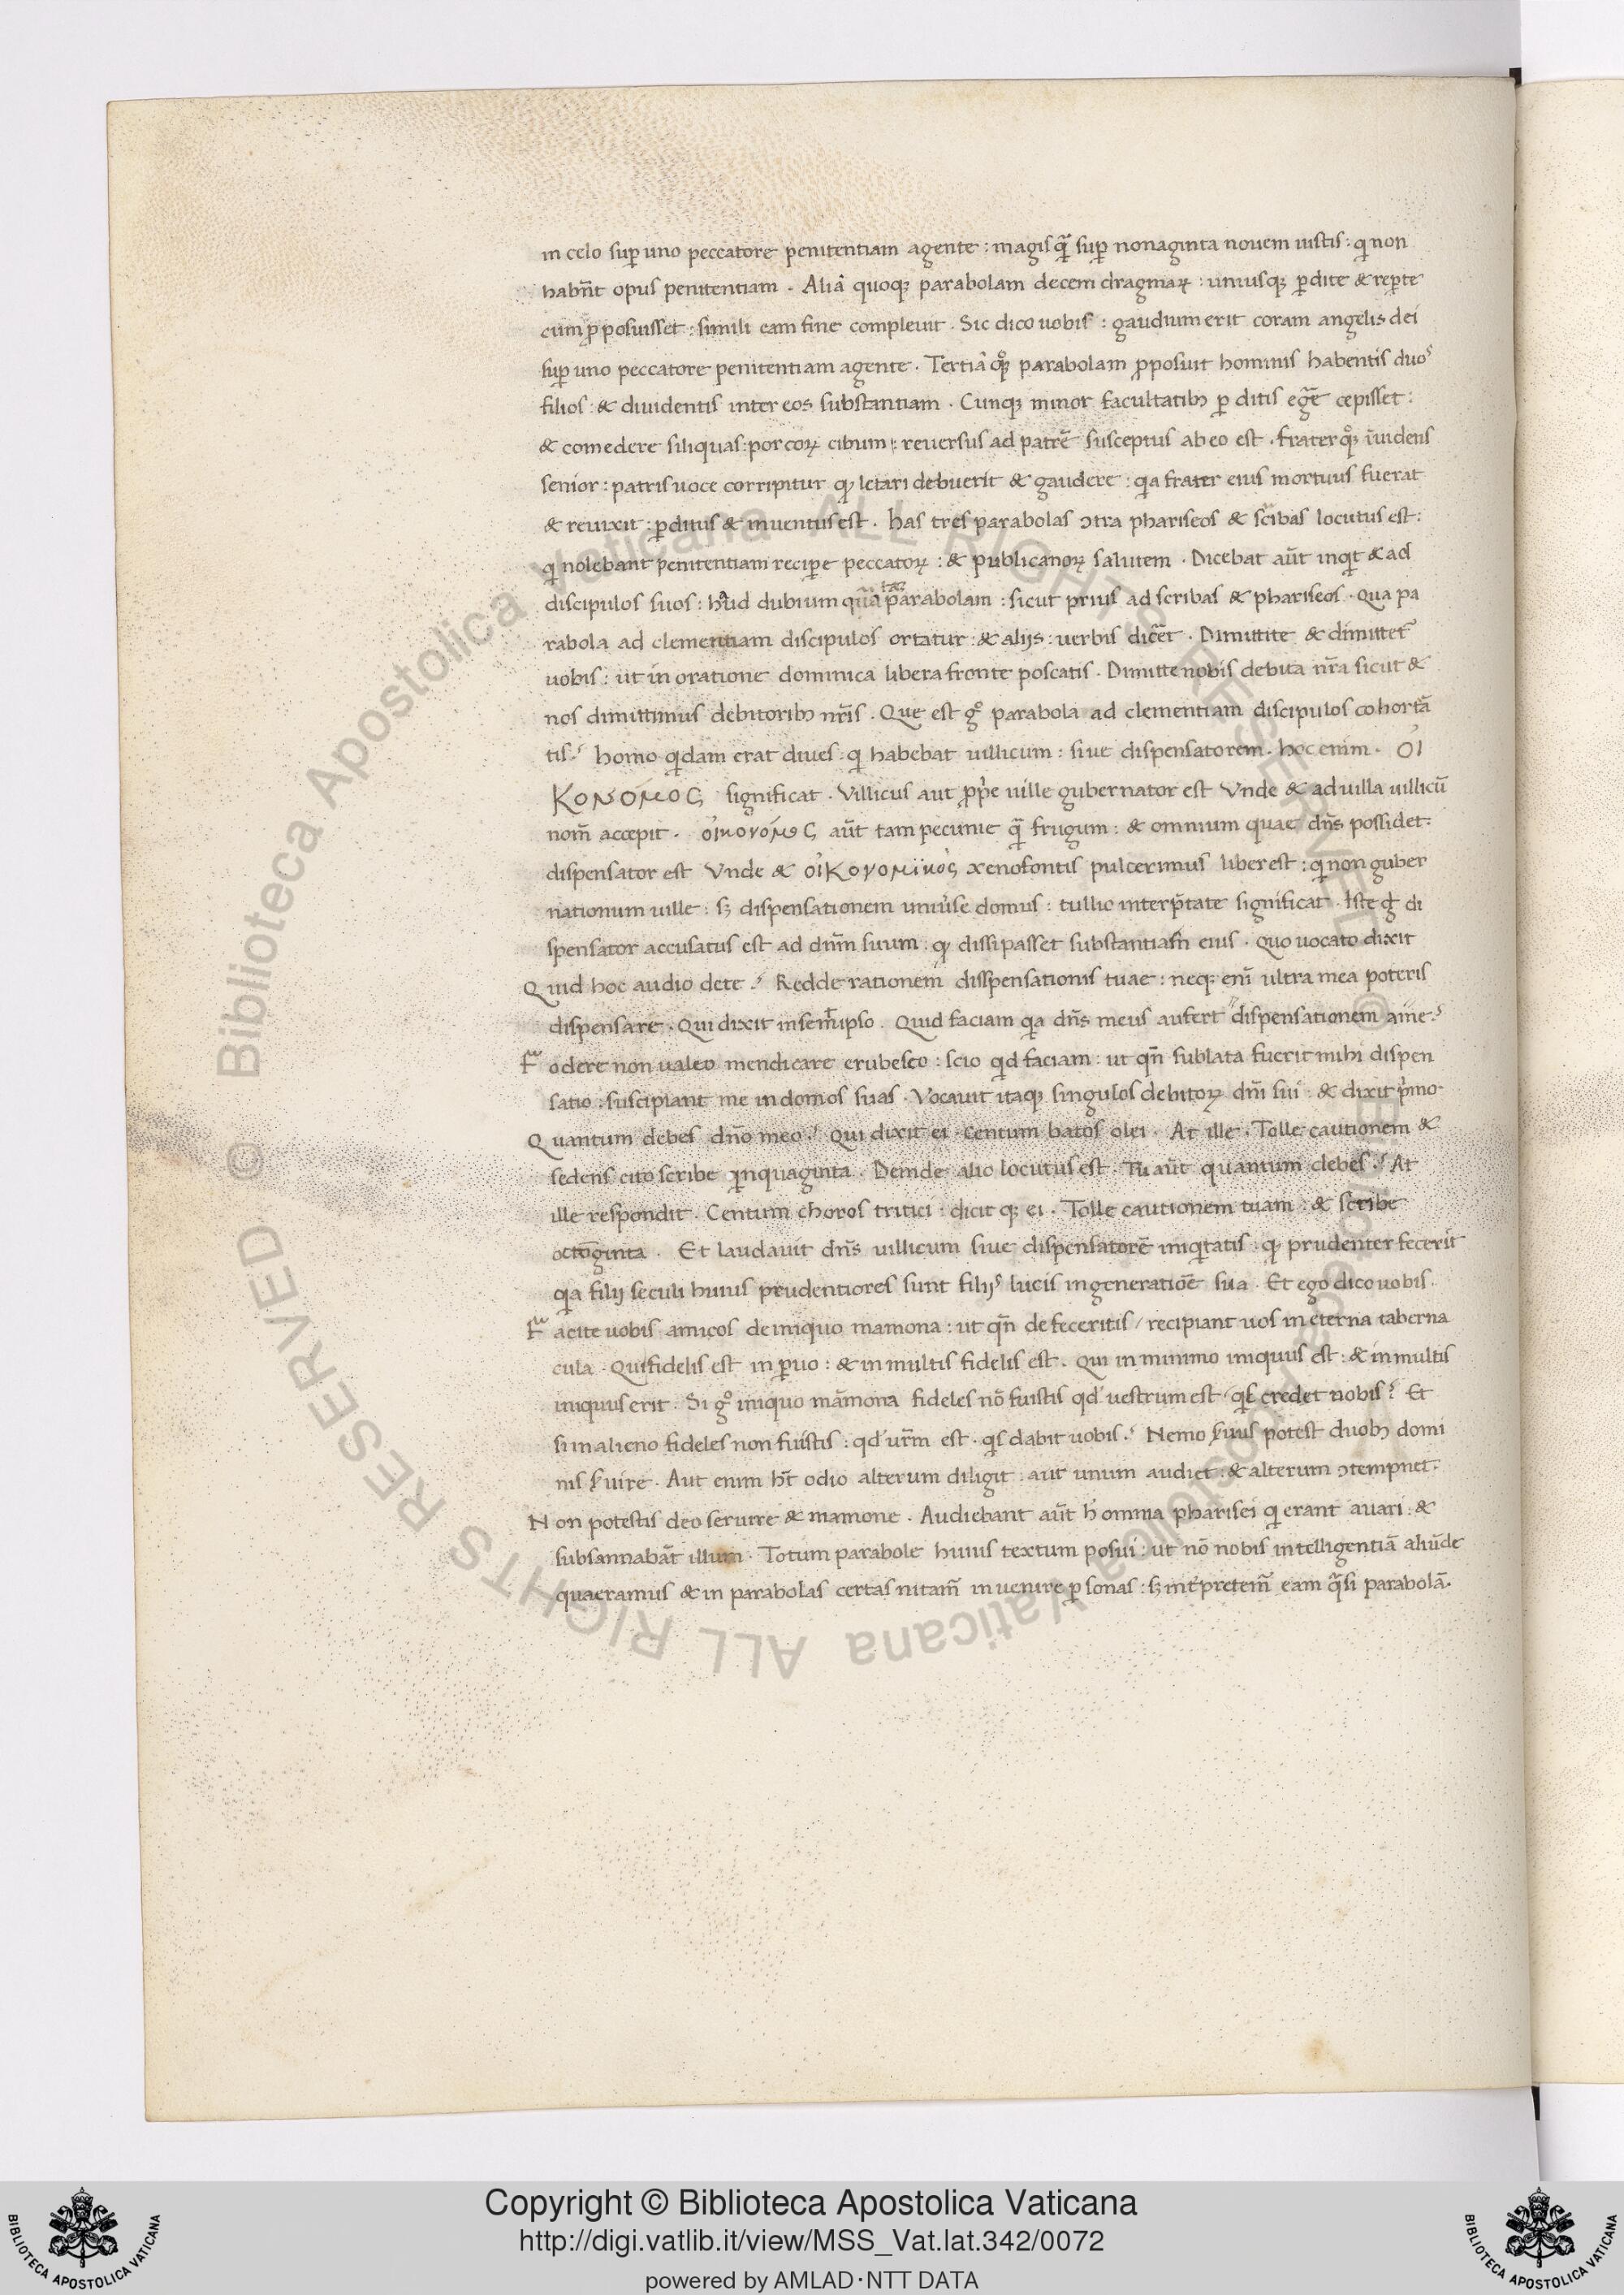 in celo sup̱ uno peccatore penitentiam agente : magis qͣ̄ sup̱ nonaginta nouem iustis : qi non
habn̄t opus penitentiam . Aliā quoqꝫ parabolam decem dragmaꝝ : uniusqꝫ ꝑdite & reꝑte
cum ꝓposuisset : simili eam fine compleuit . Sic dico uobis : gaudium erit coram angelis dei
suꝑ uno peccatore penitentiam agente . Tertiā qͦqꝫ parabolam ꝓposuit hominis habentis duos
filios : & diuidentis inter eos substantiam . Cunqꝫ minor facultatibꝫ ꝑditis egē̄ cepisset :
& comedere siliquas : porcoꝝ cibum : reuersus ad patrē susceptus ab eo est . fraterqͦqꝫ inuidens
senior : patris uoce corripitur qꝫ letari debuerit & gaudere : qia frater eius mortuus fuerat
& reuixit : ꝑditus & inuentus est . has tres parabolas ↄtra phariseos & scribas locutus est :
qi nolebant penitentiam reciꝑe peccatoꝝ : & publicanoꝝ salutem . Dicebat aūt inqit & ad
discipulos suos : haud dubium quā parabolam : sicut prius ad scribas & phariseos . Qua pa
rabola ad clementiam discipulos ortatur : & alijs : uerbis dicēt . Dimittite & dimittet᷑
uobis : ut in oratione dominica libera fronte poscatis . Dimitte nobis debita nr̄a sicut &
nos dimittimus debitoribꝫ nr̄is . Que est gͦ parabola ad clementiam discipulos cohortā
tis ? homo qidam erat diues : qi habebat uillicum : siue dispensatorem . hoc enim . ΟἸ
ΚΟΝΌΜΟϹ significat . Villicus aut ꝓpe uille gubernator est Vnde & ad uilla uillicū
nom̄ accepit . οἰκονόμοϲ aūt tam pecunie qͣ̄ frugum : & omnium quae dn̄s possidet :
dispensator est Vnde & οἰκονομικὸς xenofontis pulcerimus liber est : qi non guber
nationum uille : sꝫ dispensationem uniuse domus : tullio interp̄tate significat . Iste gͥ di
spensator accusatus est ad dnm̄ suum : qꝫ dissipasset substantiam eius . Quo uocato dixit
Quid hoc audio dete ? Redde rationem disspensationis tuae : neqꝫ eni᷑ ultra mea poteris
dispensare . Qui dixit in semetipso . Quid faciam qia dn̄s meus aufert dispensationem a me ?
Fodere non ualeo mendicare erubesco : scio qid faciam : ut qn̄ sublata fuerit mihi dispen
satio : suscipiant me in domos suas . Vocauit itaqꝫ singulos debitoꝝ dni᷑ sui : & dixit pͥmo
Quantum debes dn̄o meo ? Qui dixit ei . Centum batos olei . At ille . Tolle cautionem &
sedens cito scribe qinquaginta . Deinde alio locutus est . Tu aūt quantum debes ? At
ille respondit . Centum choros tritici : dicit qꝫ ei . Tolle cautionem tuam : & scribe
octoginta . Et laudauit dn̄s uillicum siue dispensatorē iniqitatis : qꝫ prudenter fecerit
qia filij seculi huius prudentiores sunt filijs lucis in generatiōe sua . Et ego dico uobis .
Facite uobis amicos de iniquo mamona : ut qn̄ defeceritis / recipiant uos in eterna taberna
cula . Qui fidelis est in ꝑuo : & in multis fidelis est . Qui in minimo iniquus est : & in multis
iniquus erit . Si gͦ iniquo māmona fideles nō fuistis qd̓ uestrum est qis credet nobis ? Et
si in alieno fideles non fuistis : qd̓ ur̄m est . qis dabit uobis ? Nemo ẜuus potest duobꝫ domi
nis ẜuire . Aut enim h̄t odio alterum diligit : aut unum audiet : & alterum ↄtempnet .
Non potestis deo seruire & mamone . Audiebant aūt h̓ omnia pharisei qi erant auari : &
subsannabāt illum . Totum parabole huius textum posui : ut nō nobis intelligentiā aliūde
quaeramus & in parabolas certas nitam᷑ inuenire ꝑsonas : sꝫ int̓pretem᷑ eam qͣsi parabolā .
Copyright © Biblioteca Apostolica Vaticana
http://digi.vatlib.it/view/MSS_Vat.lat.342/0072
powered by AMLAD·NTT DATA
BIBLIOTECA APOSTOLICA VATICANA
BIBLIOTECA APOSTOLICA VATICANA
© Biblioteca Apostolica Vaticana ALL RIGHTS RESERVED © Biblioteca Apostolica Vaticana ALL RIGHTS RESERVED